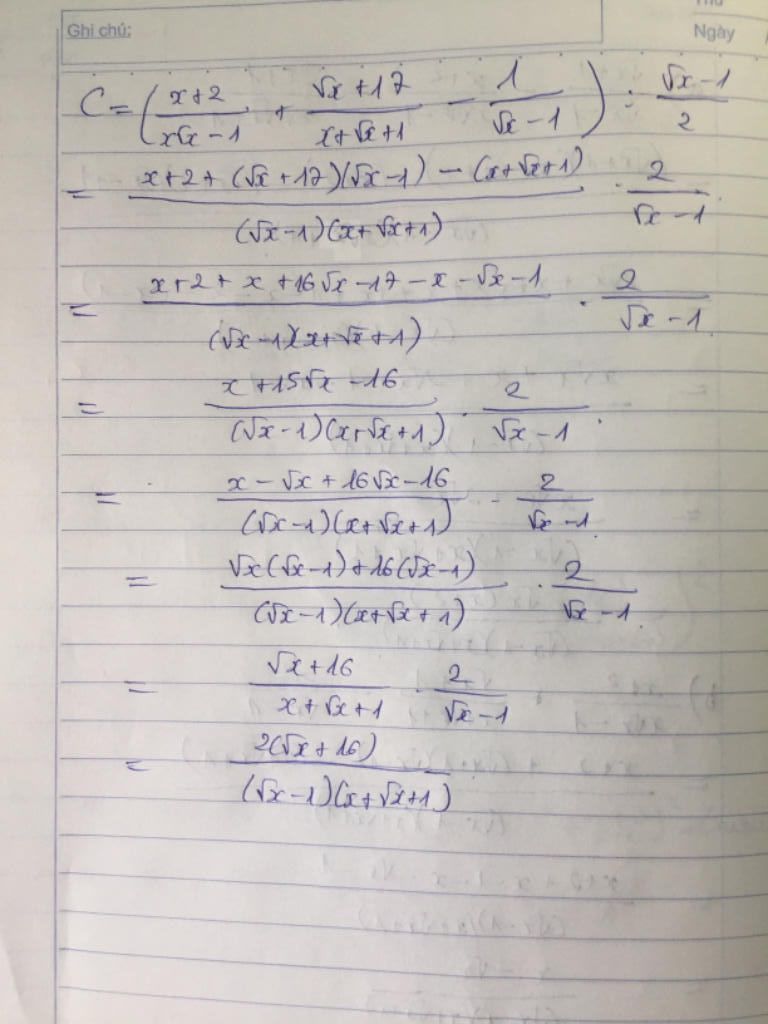 Ghi chú:
Ngày
C = ( (x+2)/(x√x - 1) + (√x + 17)/(x+√x+1) - 1/(√x - 1) ) : (√x - 1)/2
= (x+2 + (√x + 17)(√x - 1) - (x+√x+1))/((√x - 1)(x+√x+1)) · 2/(√x - 1)
= (x+2 + x + 16√x - 17 - x - √x - 1)/((√x - 1)(x+√x+1)) · 2/(√x - 1)
= (x + 15√x - 16)/((√x - 1)(x+√x+1)) · 2/(√x - 1)
= (x - √x + 16√x - 16)/((√x - 1)(x+√x+1)) · 2/(√x - 1)
= (√x(√x - 1) + 16(√x - 1))/((√x - 1)(x+√x+1)) · 2/(√x - 1)
= (√x + 16)/(x+√x+1) · 2/(√x - 1)
= 2(√x + 16)/((√x - 1)(x+√x+1))